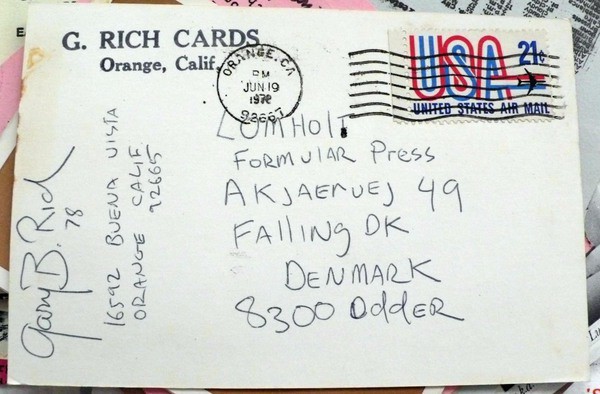 G. RICH CARDS
Orange, Calif.
ORANGE, CA
PM
JUN 19
1978
92667
USA 21c
UNITED STATES AIR MAIL
LOMHOLT
FORMULAR Press
AKJAERVEJ 49
FAlliNg DK
DENMARK
8300 Odder
Gary B. Rich
78
16592 BUENA VISTA
ORANGE CALIF
92665